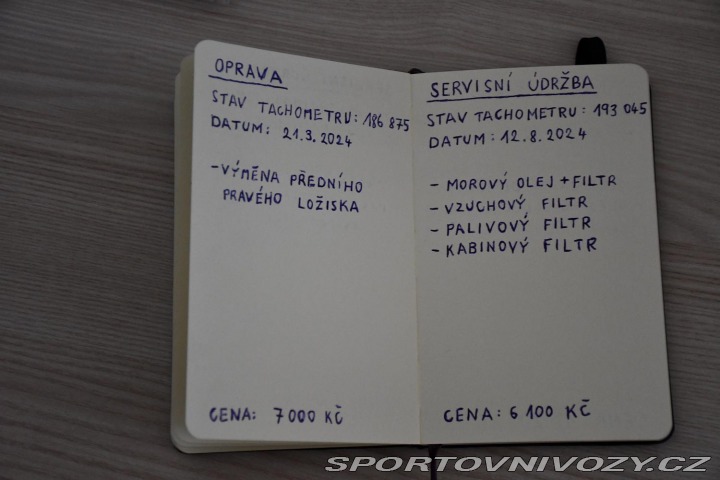 OPRAVA
STAV TACHOMETRU: 186 875
DATUM: 21.3.2024
- VÝMĚNA PŘEDNÍHO
PRAVÉHO LOŽISKA
CENA: 7000 KČ
SERVISNÍ ÚDRŽBA
STAV TACHOMETRU: 193 045
DATUM: 12.8.2024
- MOROVÝ OLEJ + FILTR
- VZUCHOVÝ FILTR
- PALIVOVÝ FILTR
- KABINOVÝ FILTR
CENA: 6 100 KČ
SPORTOVNIVOZY.CZ